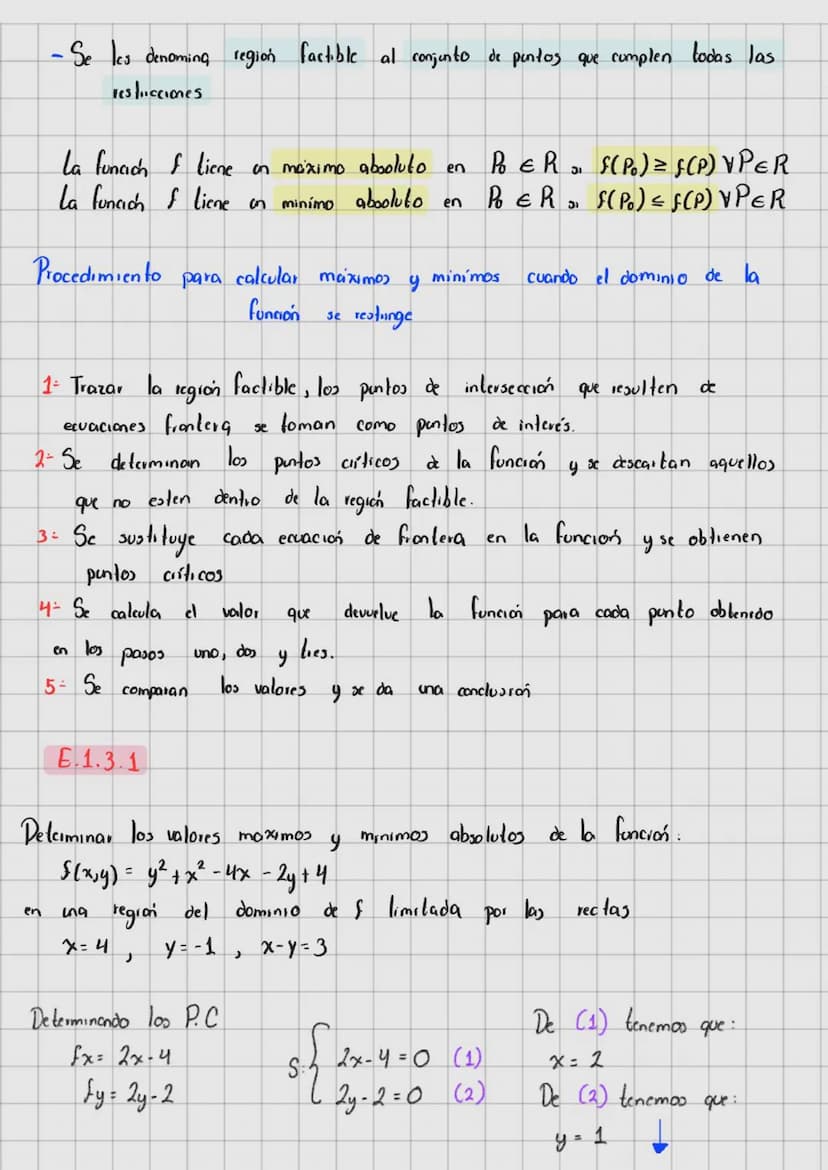 - Se les denomina región factible al conjunto de puntos que cumplen todas las
restricciones
La función f tiene un máximo absoluto en P₀ ∈ R si f(P₀) ≥ f(P) ∀ P ∈ R
La función f tiene un mínimo absoluto en P₀ ∈ R si f(P₀) ≤ f(P) ∀ P ∈ R
Procedimiento para calcular máximos y mínimos cuando el dominio de la
función se restringe
1- Trazar la región factible, los puntos de intersección que resulten de
ecuaciones frontera se toman como puntos de interés.
2- Se determinan los puntos críticos de la función y se descartan aquellos
que no esten dentro de la región factible.
3- Se sustituye cada ecuación de frontera en la función y se obtienen
puntos críticos
4- Se calcula el valor que devuelve la función para cada punto obtenido
en los pasos uno, dos y tres.
5- Se comparan los valores y se da una conclusión
E.1.3.1
Determinar los valores maximos y minimos absolutos de la función:
f(x,y) = y² + x² - 4x - 2y + 4
en una región del dominio de f limitada por las rectas
x = 4 , y = -1 , x-y = 3
Determinando los P.C
fx = 2x - 4
fy = 2y - 2
S: { 2x - 4 = 0 (1)
2y - 2 = 0 (2)
De (1) tenemos que:
x = 2
De (2) tenemos que:
y = 1 ↓